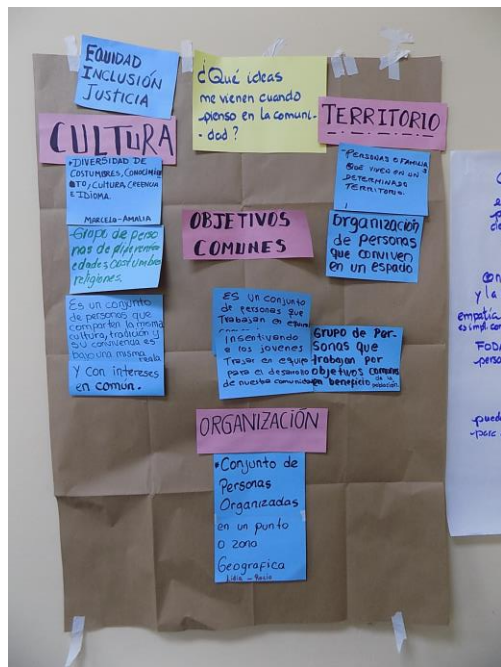 EQUIDAD
INCLUSIÓN
JUSTICIA
¿Qué ideas
me vienen cuando
pienso en la comuni-
dad?
CULTURA
•DIVERSIDAD DE
COSTUMBRES, CONOCIMIEN
TO, CULTURA, CREENCIA
E IDIOMA.
MARCELO-AMALIA
-Grupo de perso
nas de diferentes
edades, costumbres
religiones.
Es un conjunto
de personas que
comparten la misma
cultura, tradición y
su convivencia es
bajo una misma
regla
Y con intereses
en común.
TERRITORIO
-PERSONAS O FAMILIA
QUE VIVEN EN UN
DETERMINADO
TERRITORIO.
Organización
de personas
que conviven
en un espacio
OBJETIVOS
COMUNES
ES UN conjunto
de personas que
Trabajan en equipo
Insentivando
a los jovenes
en equipo
para el desarrollo
de nuestra comunidad
Grupo de Per-
sonas que
trabajan por
objetivos comunes
en beneficio de la
población.
ORGANIZACIÓN
•Conjunto de
Personas
Organizadas
en un punto
o zona
Geografica
Lidia - Rocio
con
y la
empatia
FODA
perso
puede
-para